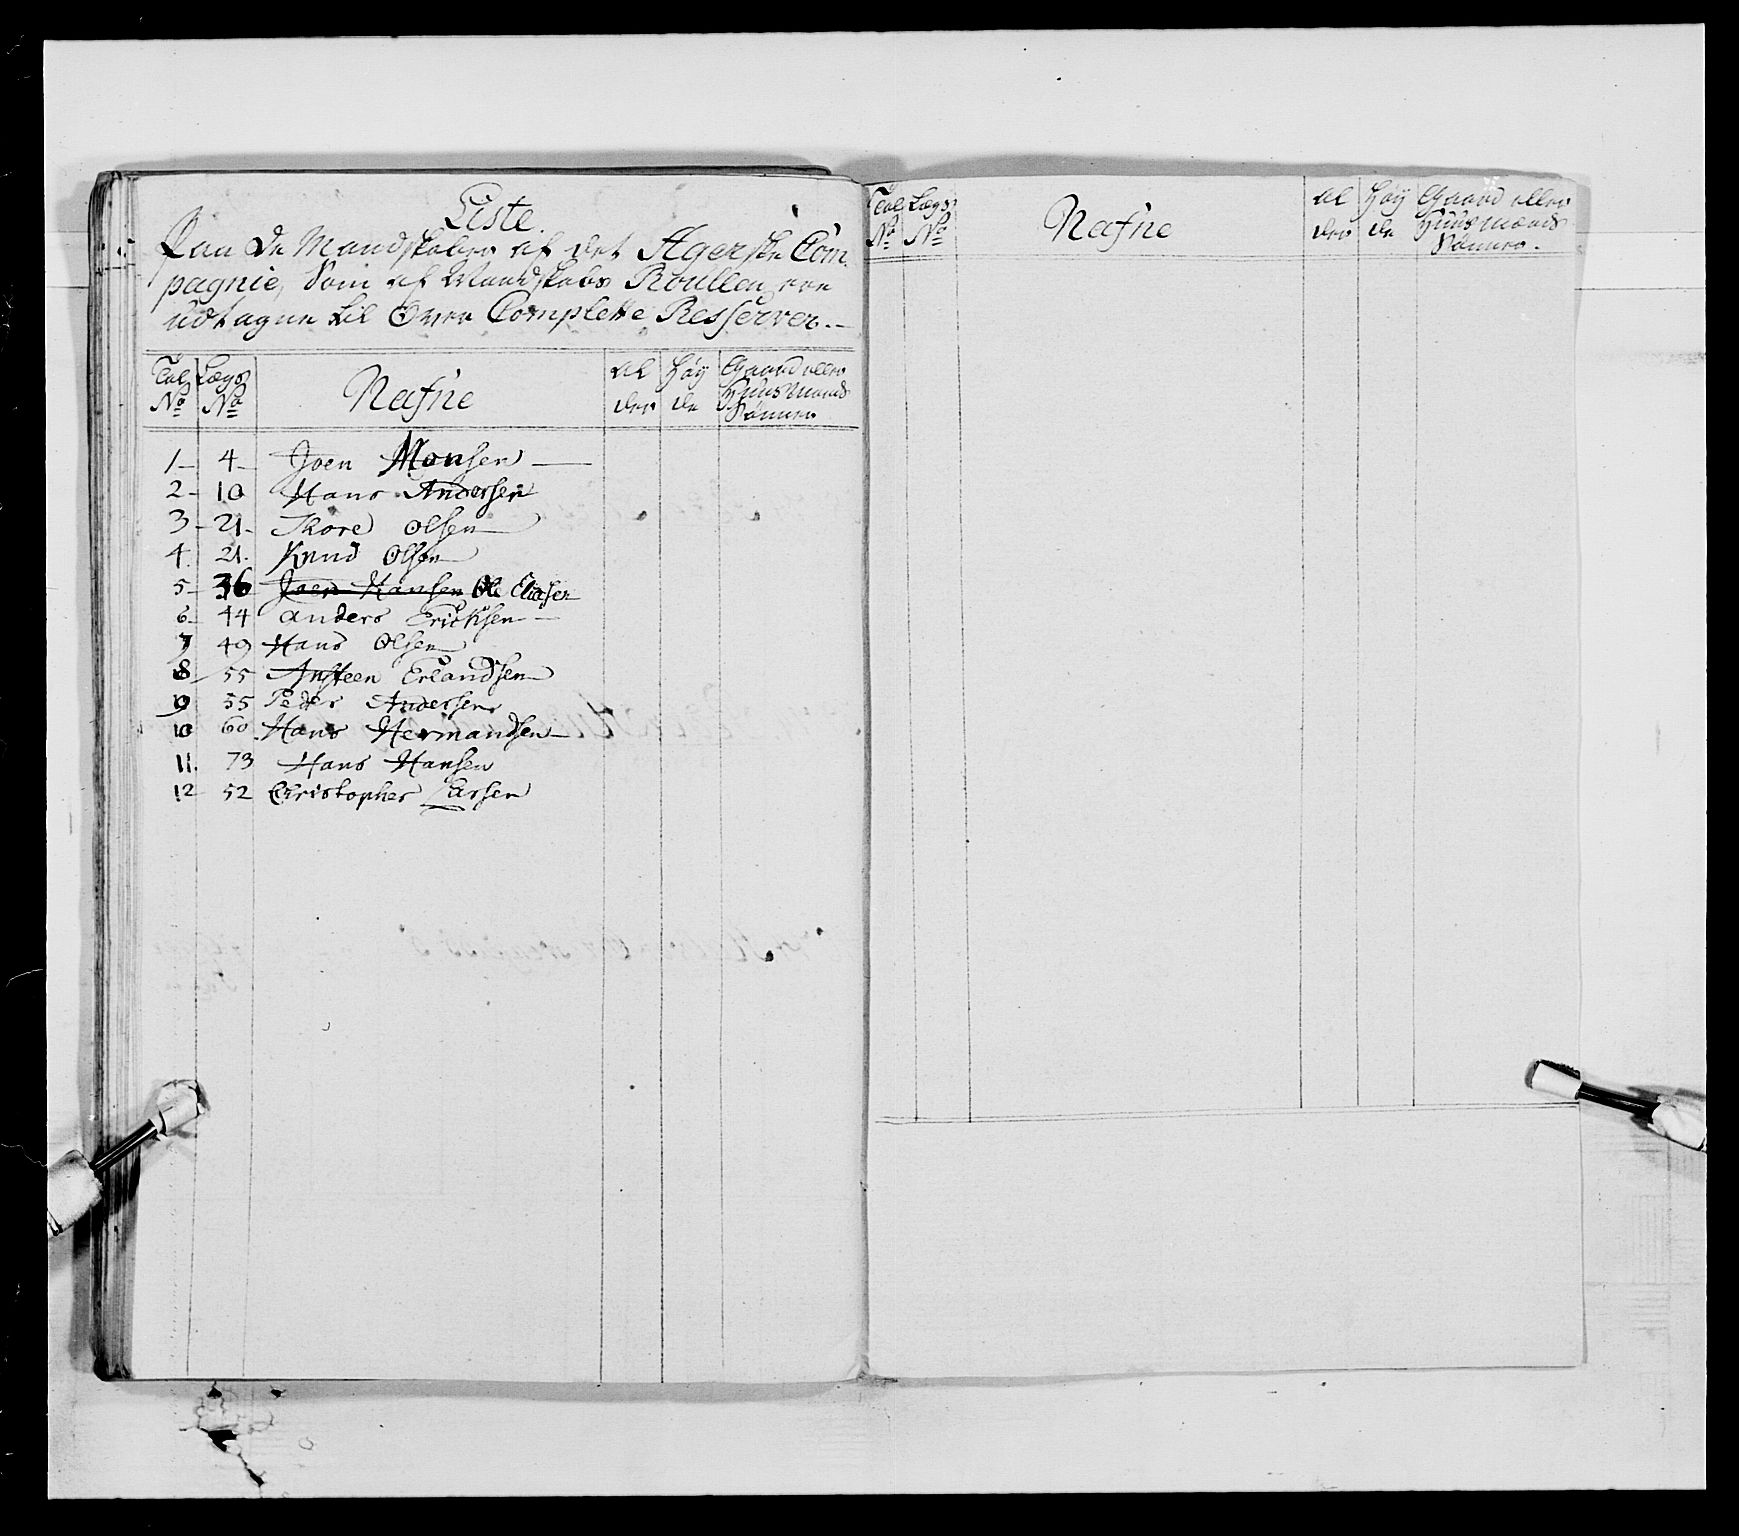 Liste.
Paa de Mandskaber af det Agerske Com¬
pagnie, Som af Mandskabs Roullen ere
udtagne til Over Complette Resserver.
Tal Lægs Nafne Al Høy Gaard eller
No No der de Huusmands
Sønner
1 4 Joen Monsen
2 10 Hans Andersen
3 21 Thore Olsen
4 21 Knud Olsen
5 36 Joen Hansen Ole Eliesen
6 44 Anders Ericksen
7 49 Hans Olsen
8 55 Ansteen Erlandsen
9 55 Peder Andersen
10 60 Hans Hermandsen
11 73 Hans Hansen
12 52 Christopher Larsen
Tal Lægs Nafne Al Høy Gaard eller
No No der de Huusmands
Sønner.